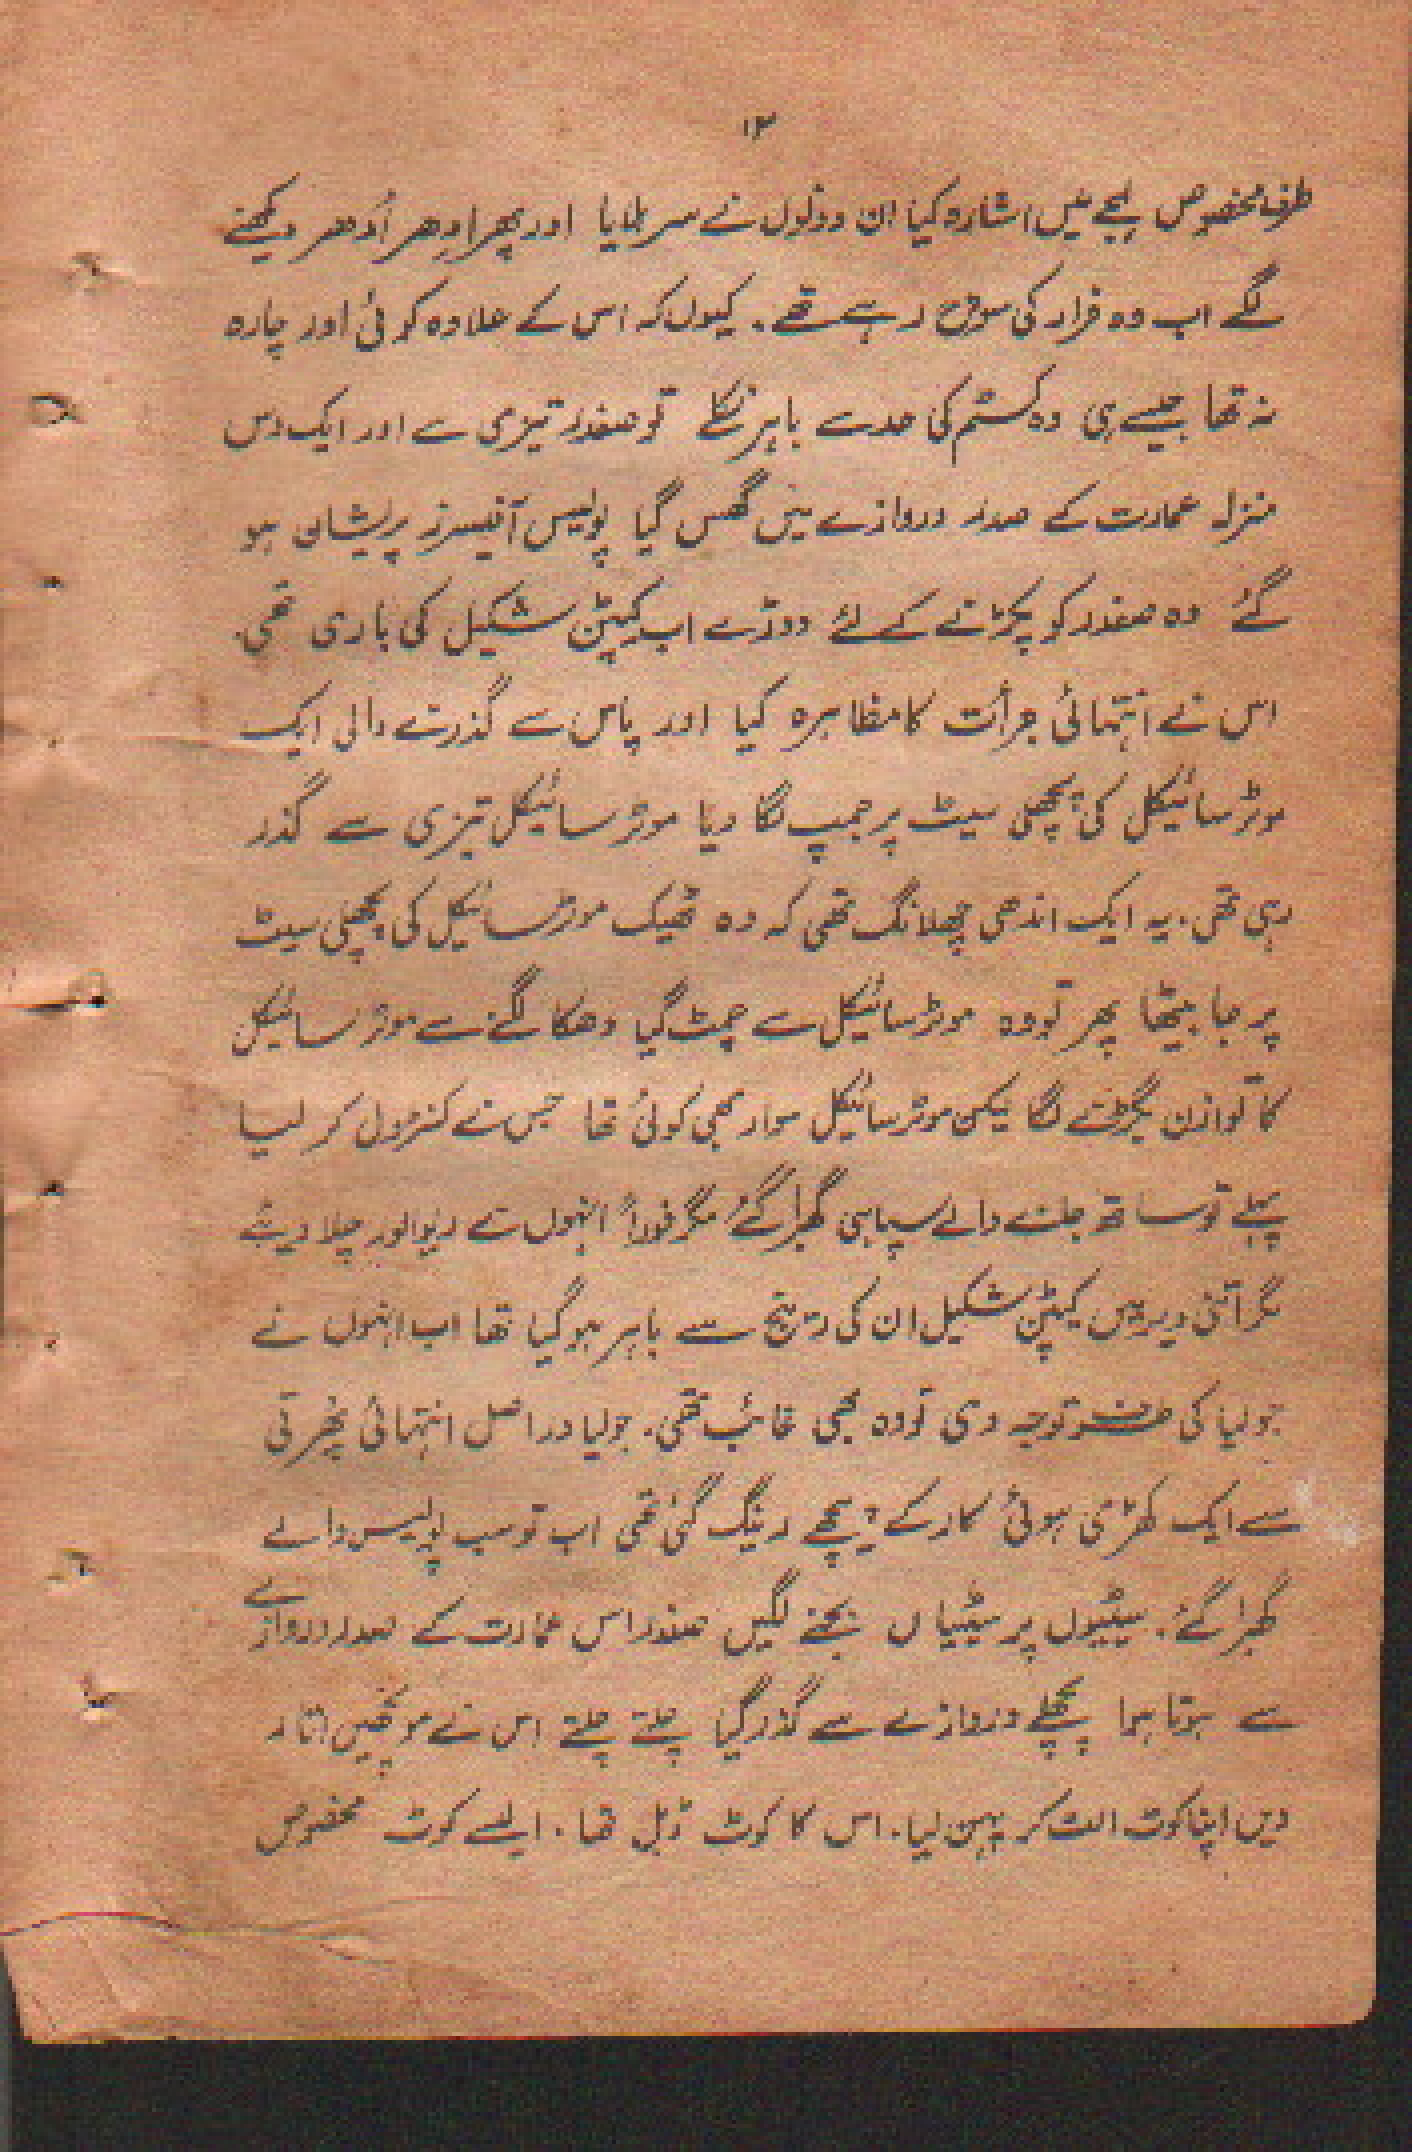 ۱۳
طرف مخصوص لہجے میں اشارہ کیا ان دونوں نے سر ہلایا اور پھر اِدھر اُدھر دیکھنے
لگے اب وہ فرار کی سوچ رہے تھے۔ کیوں کہ اس کے علاوہ کوئی اور چارہ
نہ تھا جیسے ہی وہ کسٹم کی حد سے باہر نکلے تو صفدر تیزی سے اور ایک دس
منزلہ عمارت کے صدر دروازے میں گھس گیا پولیس آفیسرز پریشان ہو
گئے وہ صفدر کو پکڑنے کے لئے دوڑے اب کیپٹن شکیل کی باری تھی۔
اس نے انتہائی جرأت کا مظاہرہ کیا اور پاس سے گذرنے والی ایک
موٹر سائیکل کی پچھلی سیٹ پر جمپ لگا دیا موٹر سائیکل تیزی سے گذر
رہی تھی۔ یہ ایک اندھی چھلانگ تھی کہ وہ ٹھیک موٹر سائیکل کی پچھلی سیٹ
پر جا بیٹھا پھر تو وہ موٹر سائیکل سے چمٹ گیا دھکا لگنے سے موٹر سائیکل
کا توازن بگڑنے لگا لیکن موٹر سائیکل سوار بھی کوئی تھا جس نے کنٹرول کر لیا
پہلے تو ساتھ چلنے والے سپاہی گھبرا گئے مگر فوراً انہوں نے ریوالور چلا دیئے
مگر اتنی دیر میں کیپٹن شکیل ان کی رینج سے باہر ہو گیا تھا اب انہوں نے
جولیا کی طرف توجہ دی تو وہ بھی غائب تھی۔ جولیا دراصل انتہائی پھرتی
سے ایک کھڑی ہوئی کار کے پیچھے رینگ گئی تھی اب تو سب پولیس والے
گھبرا گئے۔ سیٹیوں پر سیٹیاں بجنے لگیں صفدر اس عمارت کے صدر دروازے
سے ہوتا ہوا پچھلے دروازے سے گذر گیا چلتے چلتے اس نے مونچھیں اتار
دیں اپنا کوٹ الٹ کر پہن لیا۔ اس کا کوٹ ڈبل تھا۔ ایسے کوٹ مخصوص